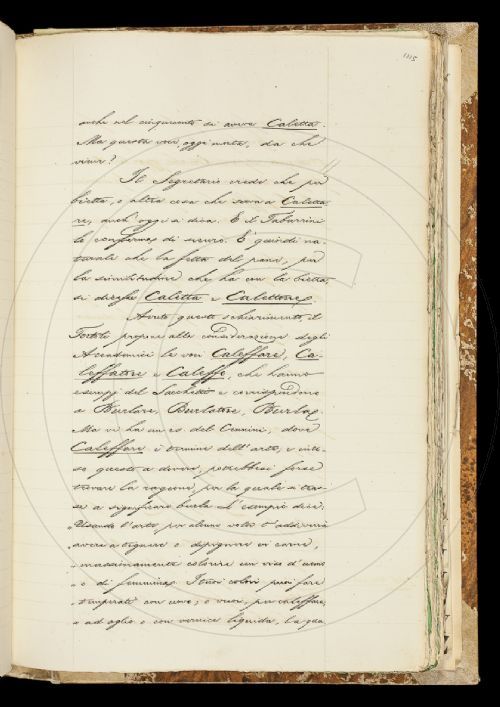 1115
anche nel cinquecento si aveva Caletta.
Ma questa voce oggi usata, da che
viene?
Il Segretario crede che per
bietta, o altra cosa che serva a Caletta
re, anch'oggi si dica. E il Tabarrini
lo conferma di sicuro. E quindi na-
turale che la fetta del pane, per
la similitudine che ha con la bietta,
si dicesse Caletta e Calettone.
Avuto questo schiarimento, il
Tortoli propone alla considerazione degli
Accademici le voci Caleffare, Ca-
leffatore e Caleffo, che hanno
esempj del Sacchetti e corrispondono
a Burlare, Burlatore, Burla.
Ma vi ha un es. del Cennini, dove
Caleffare è termine dell'arte, e inte-
so questo a dovere, potrebbesi forse
trovare la ragione, per la quale si tras-
se a significare burla. L'esempio dice:
"Usando l'arte, per alcune volte t'addiverrà
avere a tignere o dipignere in carne,
massimamente colorire un viso d'uomo
o di femmina. I tuoi colori puoi fare
temperati con uovo; o vuoi, per caleffare,
ad oglio o con vernice liquida, la qua